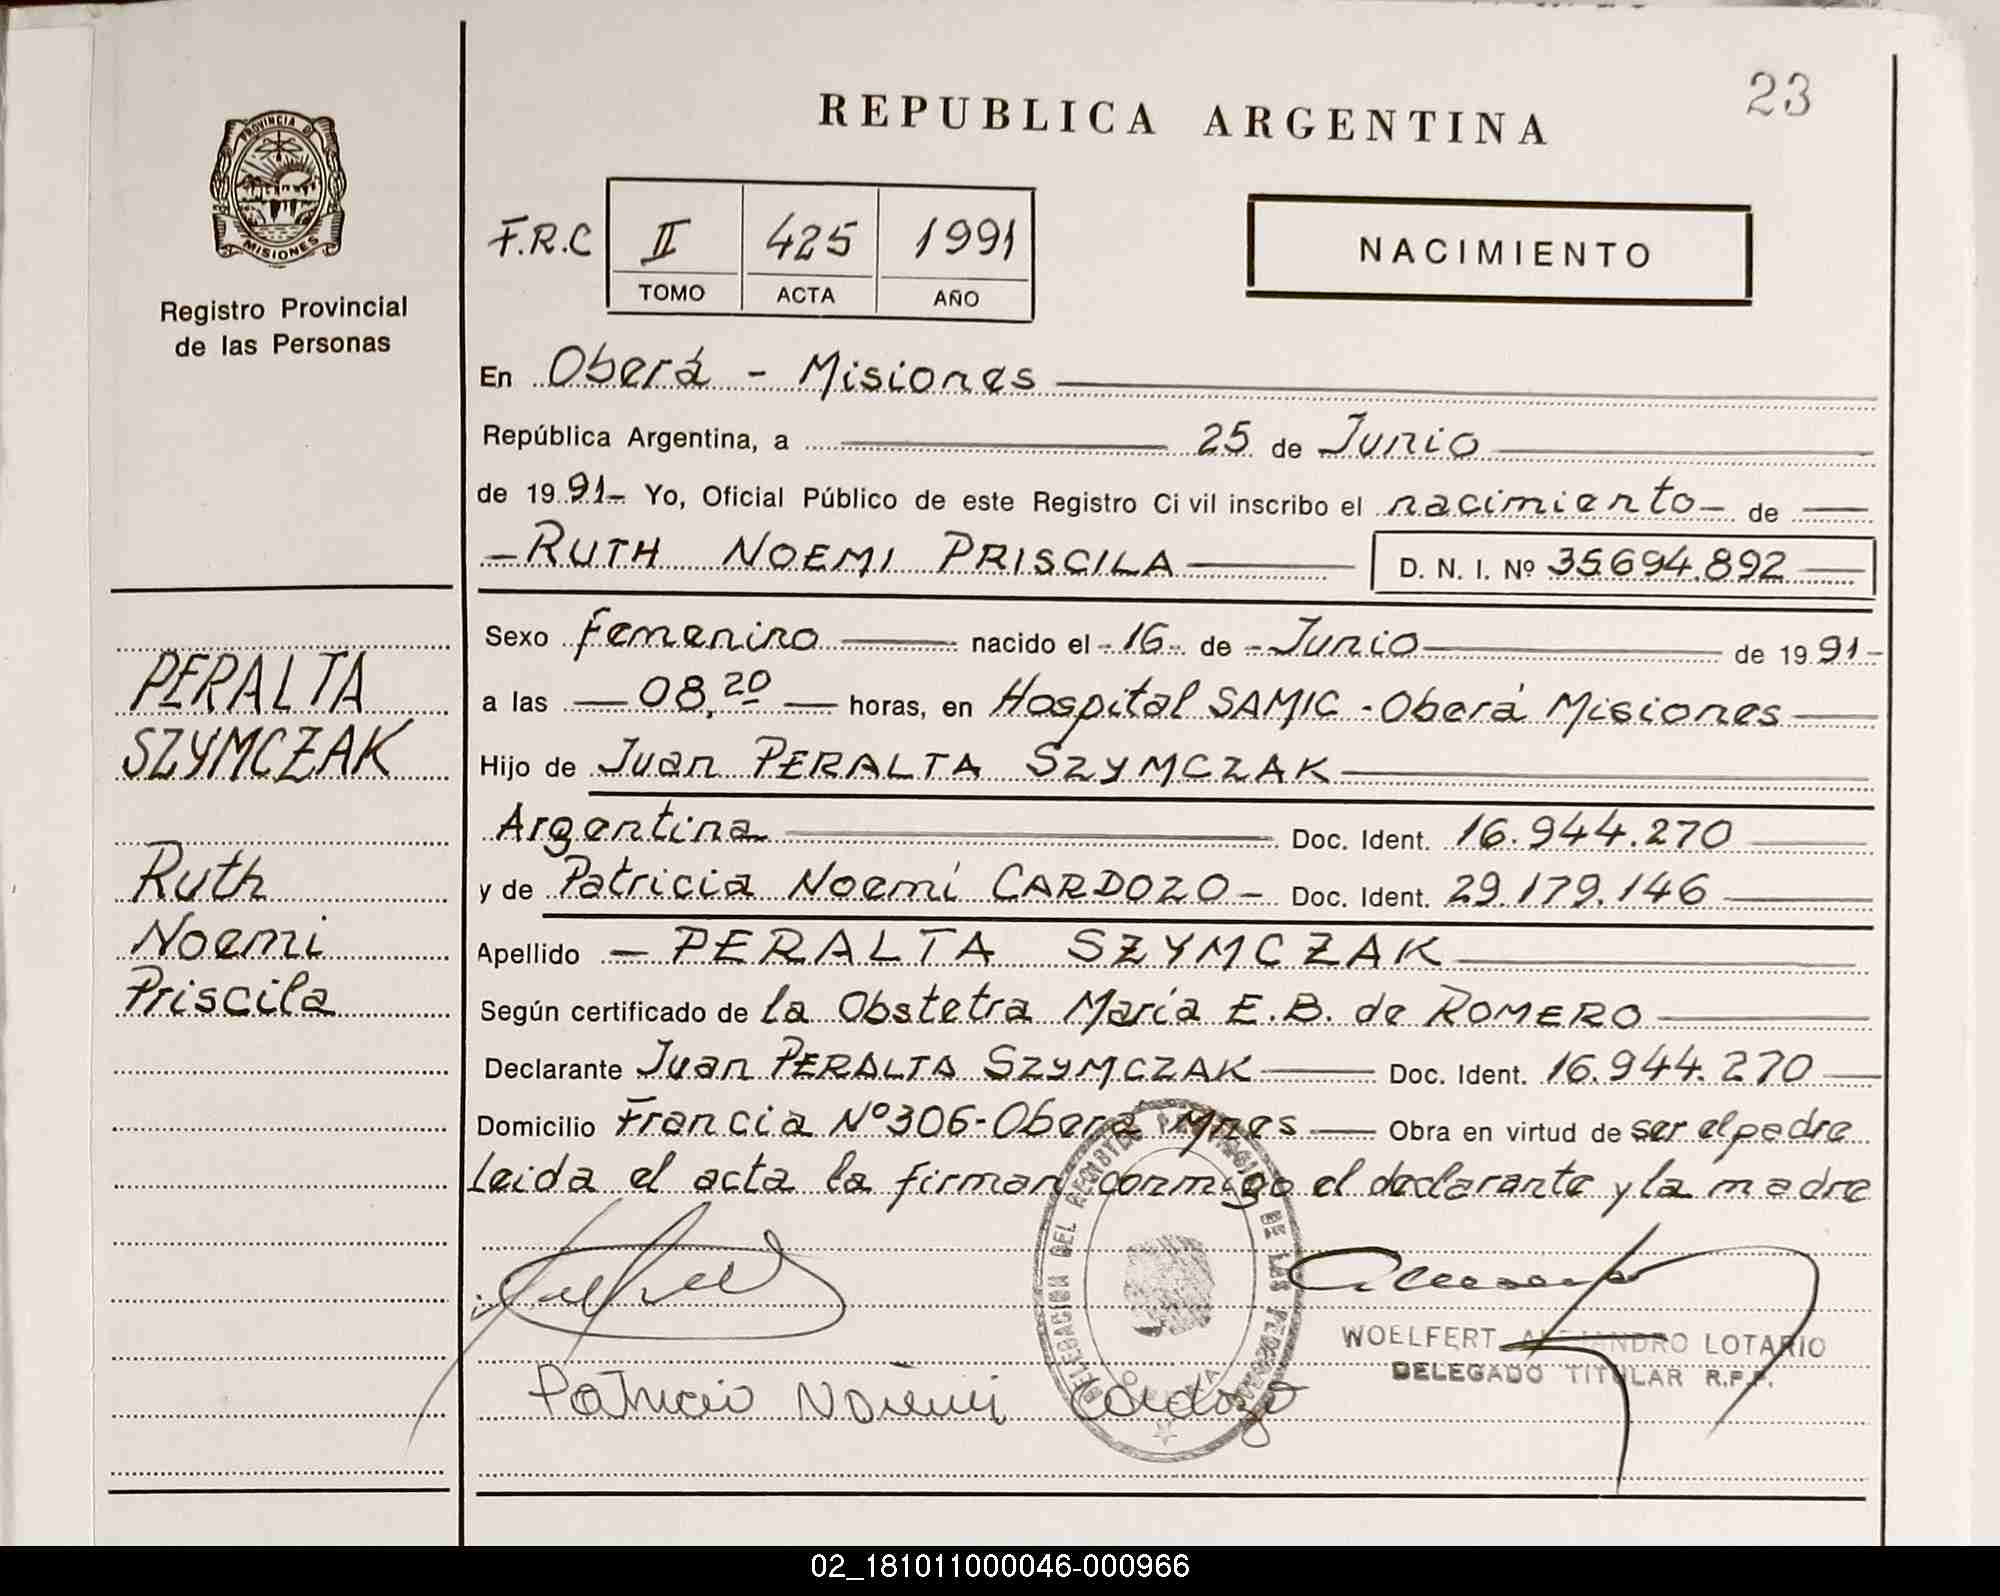 23
REPUBLICA ARGENTINA
PROVINCIA DE
MISIONES
Registro Provincial
de las Personas
F.R.C II 425 1991
TOMO ACTA AÑO
NACIMIENTO
En Oberá - Misiones
República Argentina, a 25 de Junio
de 1991- Yo, Oficial Público de este Registro Civil inscribo el nacimiento - de
- RUTH NOEMI PRISCILA D. N. I. Nº 35694.892
Sexo femenino nacido el - 16 - de - Junio de 1991 -
a las - 08,20 - horas, en Hospital SAMIC - Oberá Misiones
Hijo de Juan PERALTA SZYMCZAK
Argentina Doc. Ident. 16.944.270
y de Patricia Noemí CARDOZO - Doc. Ident. 29.179.146
Apellido - PERALTA SZYMCZAK
Según certificado de la Obstetra María E.B. de ROMERO
Declarante Juan PERALTA SZYMCZAK Doc. Ident. 16.944.270
Domicilio Francia Nº306-Oberá Mnes Obra en virtud de ser el padre
Leida el acta la firman conmigo el declarante y la madre
PERALTA
SZYMCZAK
Ruth
Noemi
Priscila
DELEGACION DEL REGISTRO DE LAS PERSONAS
WOELFERT ALEJANDRO LOTARIO
DELEGADO TITULAR R.P.P.
Patricia Noemi Cardozo
02_181011000046-000966